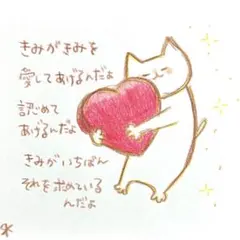 きみがきみを
愛してあげるんだよ
認めて
あげるんだよ
きみがいちばん
それを求めている
んだよ